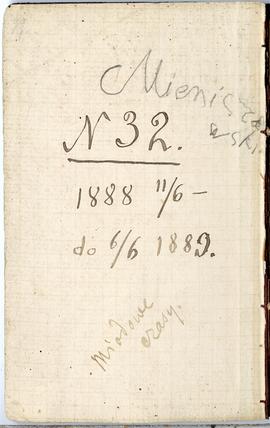 Mienicz
ewski.
N 32.
1888 11/6 –
do 6/6 1889.
Miodowe
czasy.